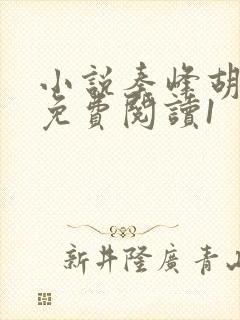 小說秦峰胡
免費閱讀1
新井隆廣青山